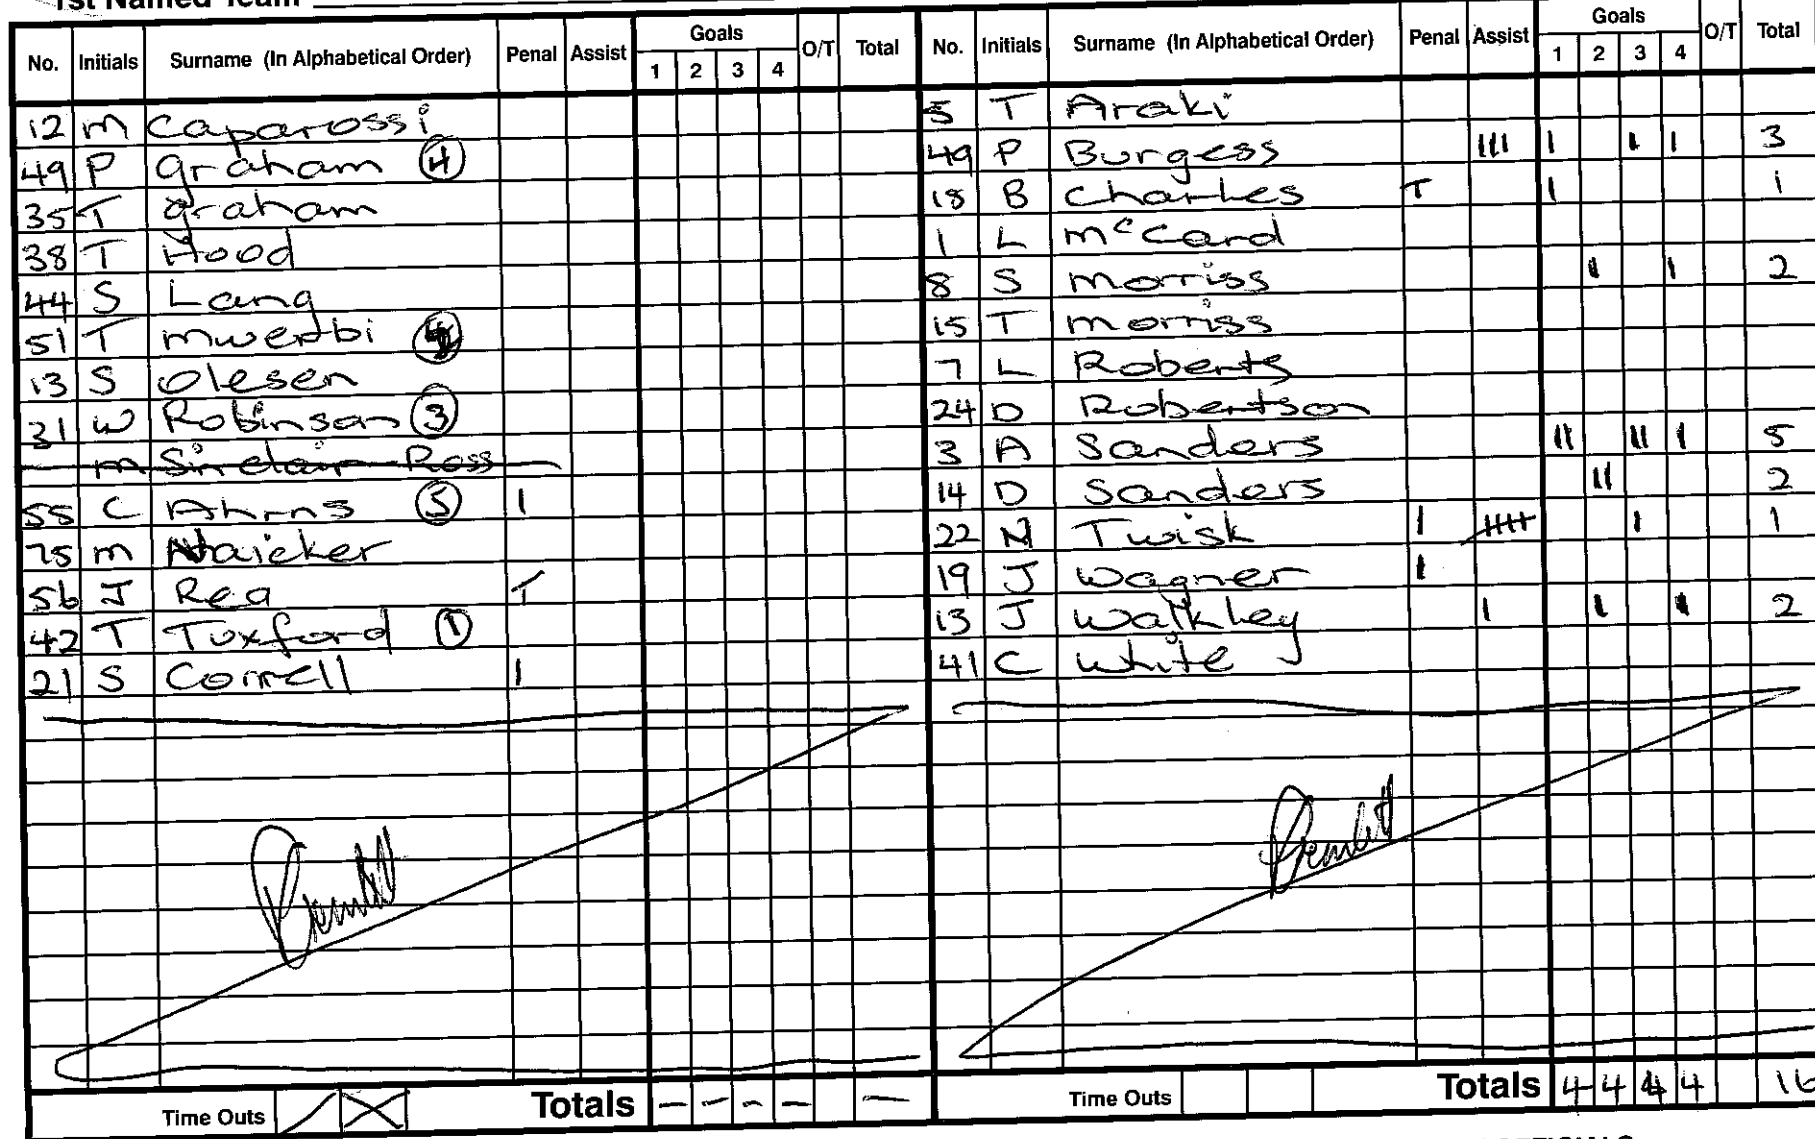 1st Named Team
No. Initials Surname (In Alphabetical Order) Penal Assist Goals 1 2 3 4 O/T Total
12 M Caparossi
49 P Graham 4
35 T Graham
38 T Hood
44 S Lang
51 T
13 S Olesen
31 W Robinson 3
M Sinclair-Ross
55 C Ahrns 5 1
75 M Naicker
56 J Rea T
42 T Tuxford 1
21 S Correll 1
Time Outs Totals - - - - -
No. Initials Surname (In Alphabetical Order) Penal Assist Goals 1 2 3 4 O/T Total
5 T Araki
49 P Burgess III I I I 3
18 B Charles T I 1
1 L McCard
8 S Morriss I I 2
15 T Morriss
7 L Roberts
24 D Robertson
3 A Sanders II II I 5
14 D Sanders II 2
22 N Twisk I IIIII I 1
19 J Wagner I
13 J Walkley I I I 2
41 C White
Time Outs Totals 4 4 4 4 16